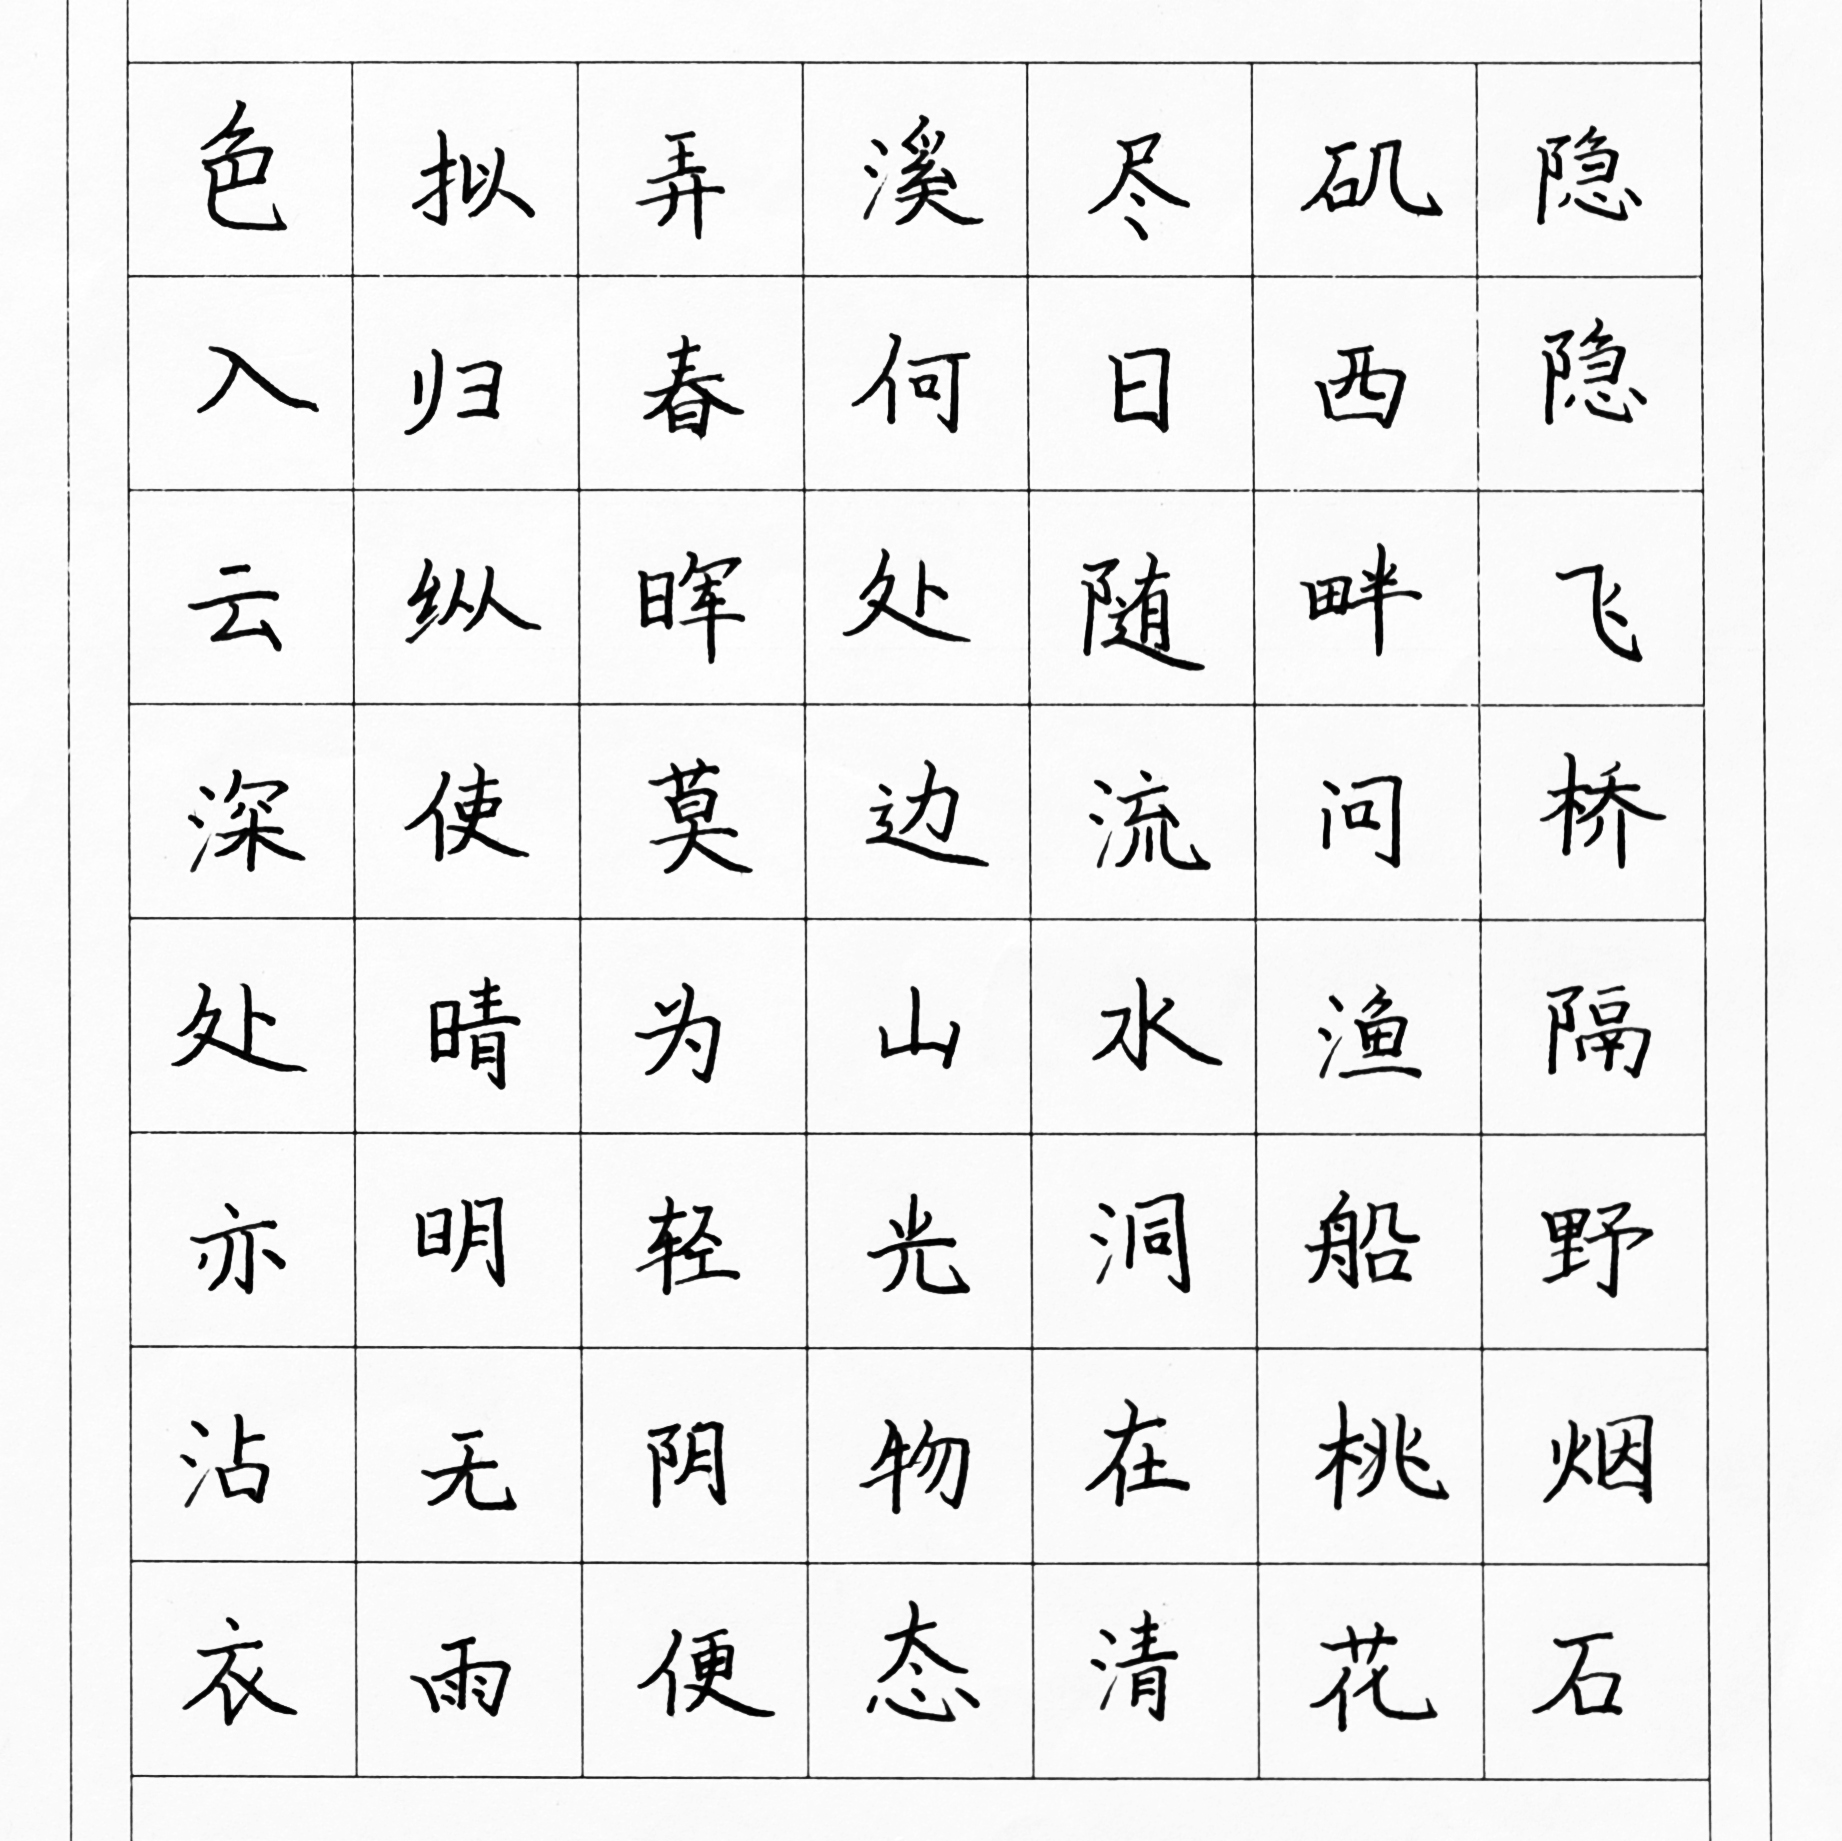 隐隐飞桥隔野烟石
矶西畔问渔船桃花
尽日随流水洞在清
溪何处边山光物态
弄春晖莫为轻阴便
拟归纵使晴明无雨
色入云深处亦沾衣